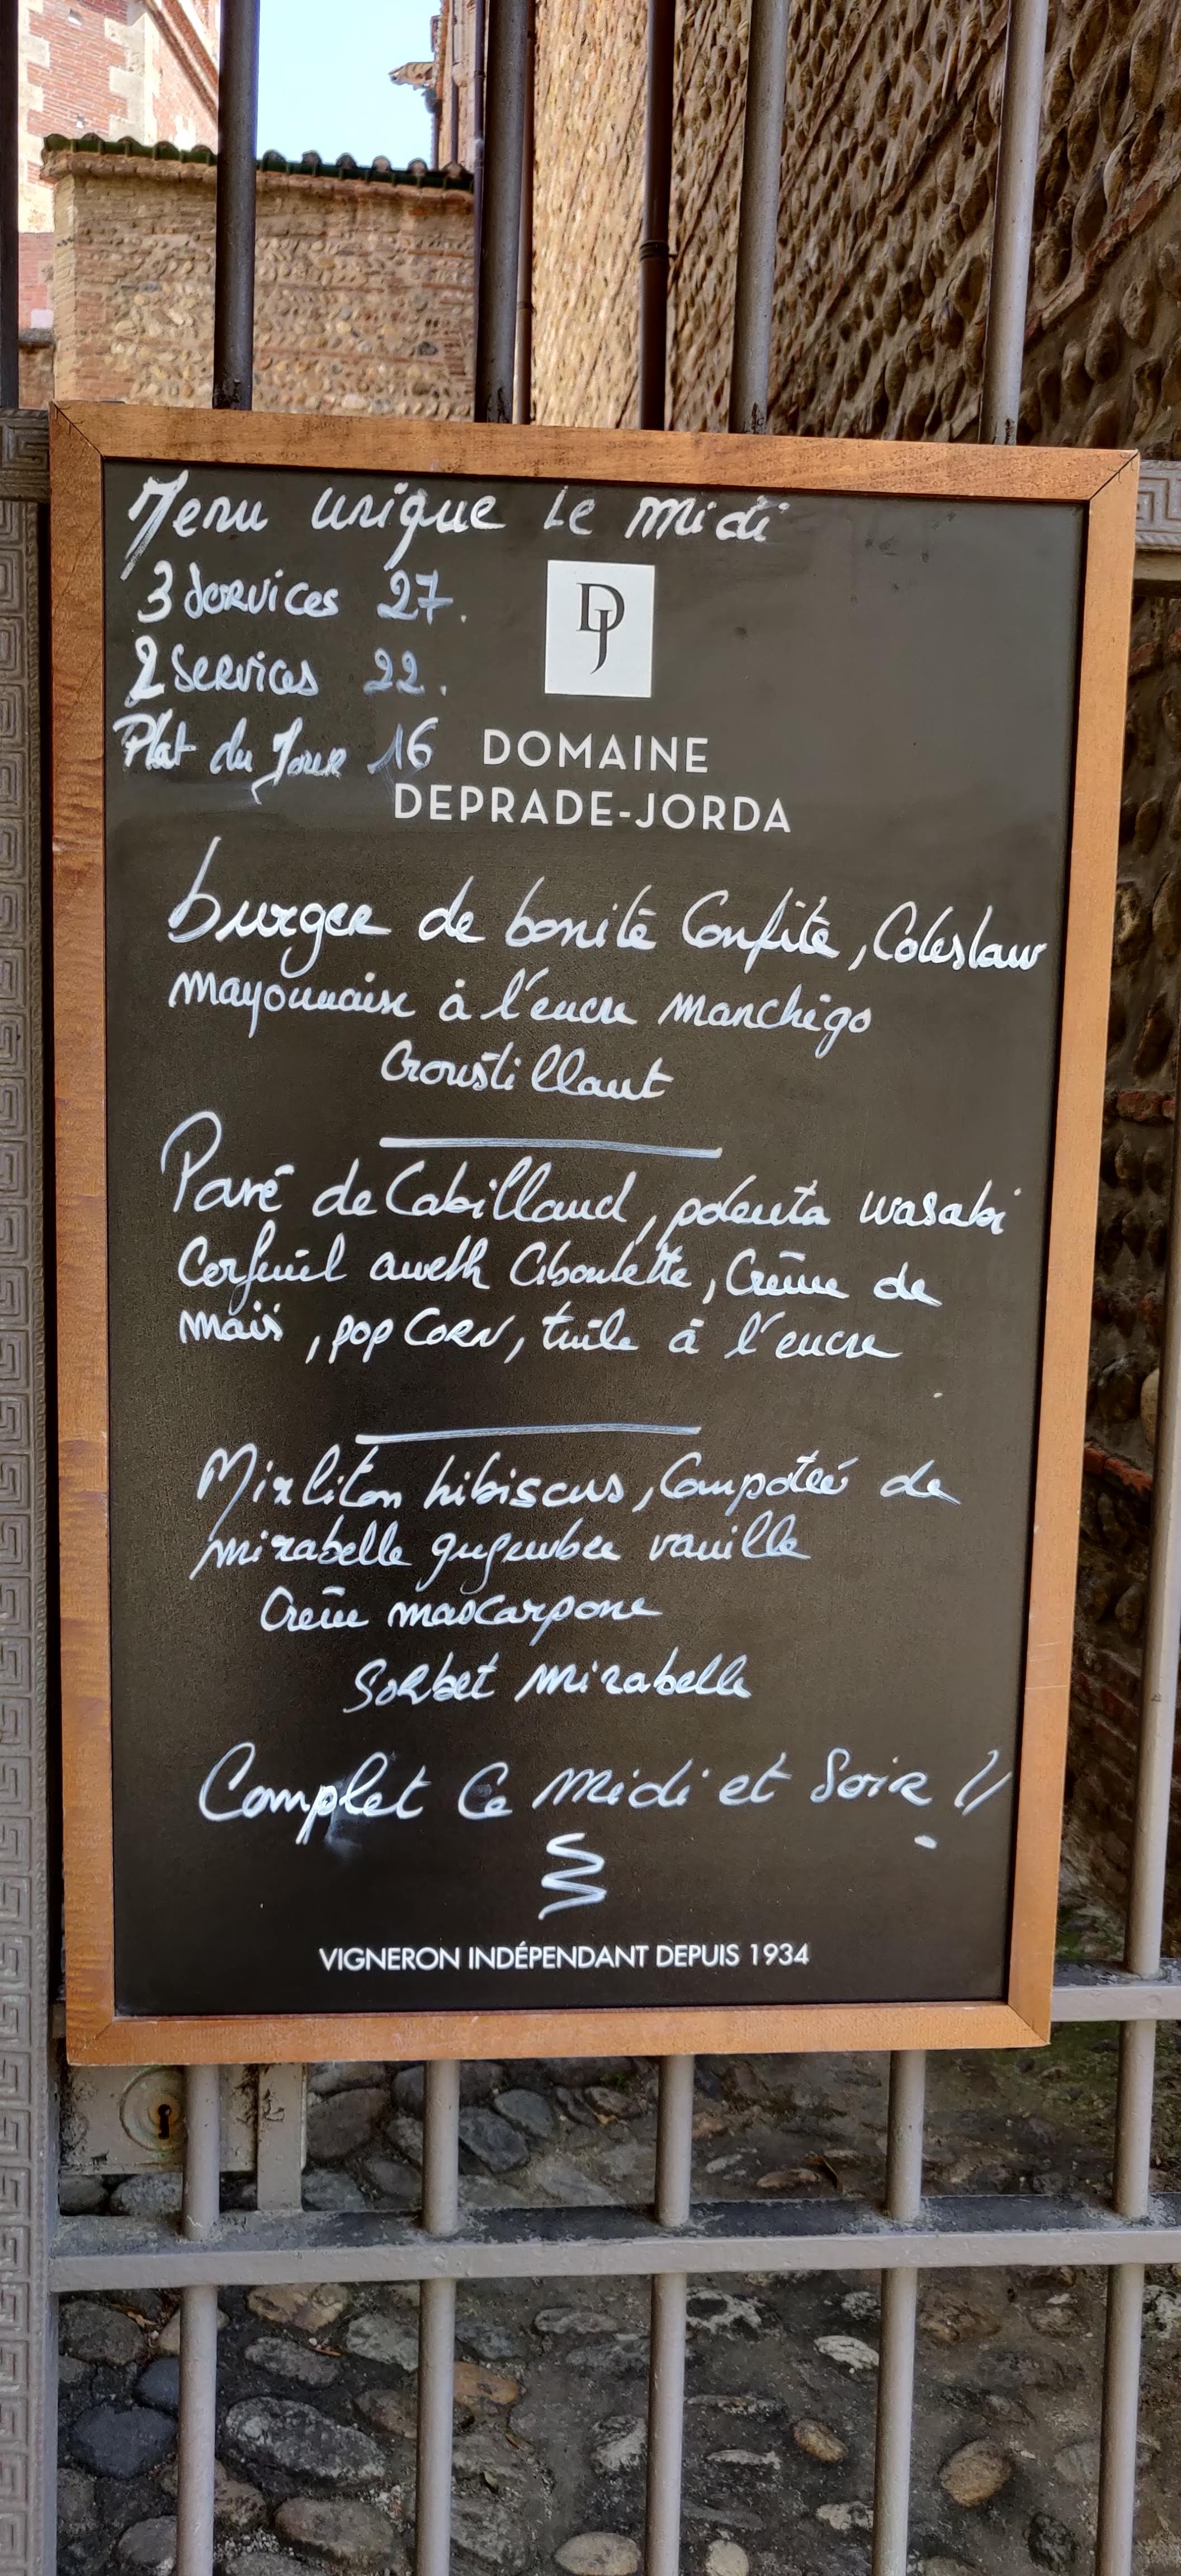 Menu unique Le midi
3 Services 27.
2 Services 22.
Plat du Jour 16
DJ
DOMAINE
DEPRADE-JORDA
burger de bonite Confite, Coleslaw
mayonnaise à l'encre manchégo
Croustillant
Pavé de Cabillaud, polenta wasabi
Cerfeuil aneth Ciboulette, Crème de
maïs, pop CORN, tuile à l'encre
Mirliton hibiscus, Compotée de
mirabelle gingembre vanille
Crème mascarpone
Sorbet mirabelle
Complet Ce midi et Soir !!
VIGNERON INDÉPENDANT DEPUIS 1934